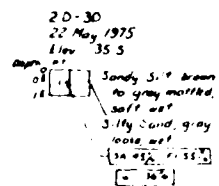 2D-30
22 May 1975
Elev 35.5
Depth
0
1.8
Sandy Silt brown
to gray mottled,
soft wet
Silty Sand, gray
loose, wet
SA 45%